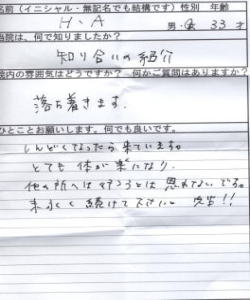 名前（イニシャル・無記名でも結構です）性別 年齢
H・A 男・女 33才
当院は、何で知りましたか？
知り合いの紹介
院内の雰囲気はどうですか？ 何かご質問はありますか？
落ち着きます。
ひとことお願いします。何でも良いです。
しんどくなったら来ています。
とても体が楽になり、
他の所へは行こうとは思わないです。
末永く続けて下さい。先生！！